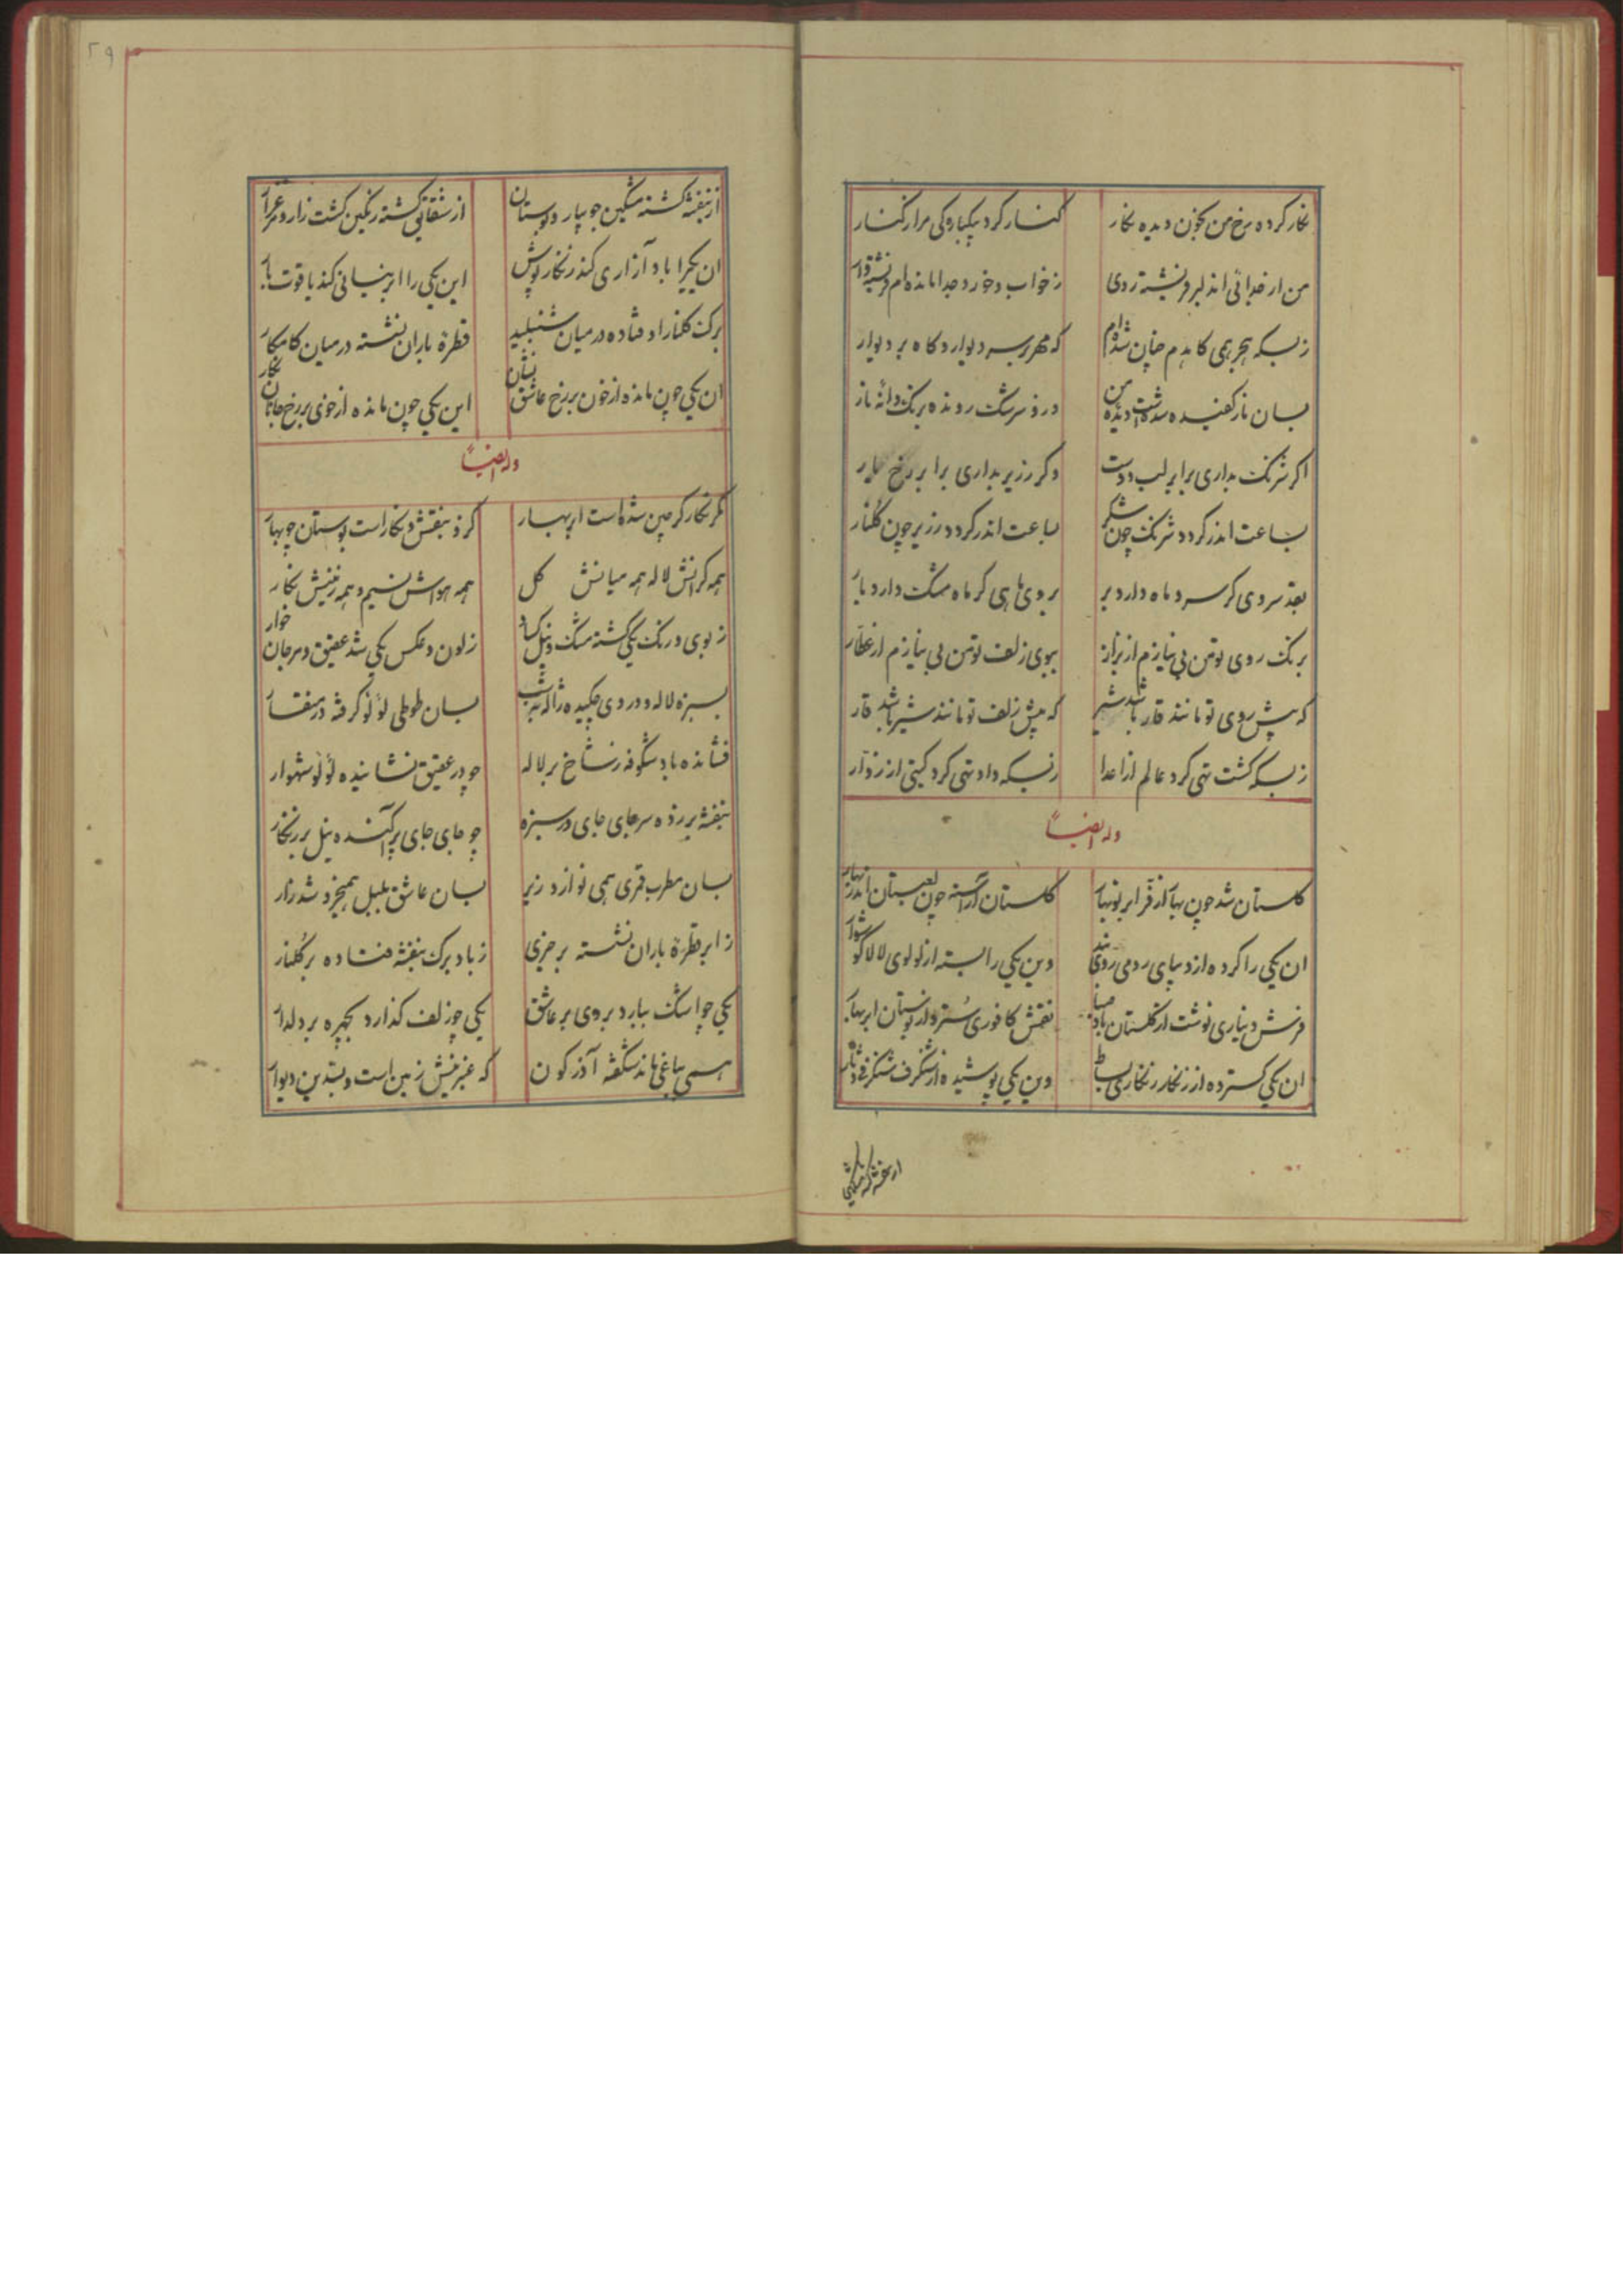 نکار کرده رخ من بخون دیده نکار کنار کرد بیکبارکی مرا ز کنار
من از جدائی ان دلبر فرشته روی ز خواب و خورد جدا مانده ام فرشته وار
ز بسکه هجر همی کاهدم چنان شده ام که مهر بر سر دیوار و کاه بر دیوار
بسان نار کفیده شدست دیده من درو سرشک رونده برنک دانه نار
اکر شرنک بداری برابر لب دوست وکر زریر بداری برابر رخ یار
بساعت اندر کردد شرنک چون شکر بساعت اندر کردد زریر چون کلنار
بقد سروی کر سرو ماه دارد بر بروی ماهی کر ماه مشک دارد بار
برنک روی تو من بی نیازم از بزاز ببوی زلف تو من بی نیازم از عطار
که پیش روی تو مانند قار باشد شیر که پیش زلف تو مانند شیر باشد قار
ز بسکه کشت تهی کرد عالم از اعدا ز بسکه داد تهی کرد کیتی از زوار
وله ایضاً
کلستان شد چون بهار از فر ابر نوبهار کلستان آراسته چون لعبستان اندر بهار
ان یکی را کرده از دیبای رومی روی بند وین یکی را بسته از لولوی لالا کوشوار
فرش دیناری نوشت از کلستان باد صبا نقش کافوری سترد از بوستان ابر بهار
ان یکی کسترده از زنکار زنکاری بساط وین یکی پوشیده از شنکرف شنکرفی دثار
از بنفشه کشته مشکین
از بنفشه کشته مشکین جویبار و بوستان از شقایق کشته رنکین کشت زار و مرغزار
ان یکیرا باد آزاری کند زنکار پوش این یکی را ابر نیسانی کند یاقوت بار
برک کلنار اوفتاده در میان شنبلید قطره باران نشسته در میان کامکار
ان یکی چون مانده از خون بر رخ عاشق نشان این یکی چون مانده از خوی بر رخ جانان نکار
وله ایضاً
مکر نکارکر چین شده است ابر بهار کزو بنقش و نکار است بوستان چو بهار
همه کرانش لاله همه میانش کل همه هواش نسیم و همه زمینش نکار
ز بوی و رنک یکی کشته مشک و نیل کساد ز لون و عکس یکی شد عقیق و مرجان خوار
بسبزه لاله و در وی چکیده ژاله بشب بسان طوطی لؤلؤ کرفته در منقار
فشانده باد شکوفه ز شاخ بر لاله چو در عقیق نشانیده لؤلؤ شهوار
بنفشه بر زده سر جای جای در سبزه چو جای جای پراکنده نیل بر زنکار
بسان مطرب قمری همی نوازد زیر بسان عاشق بلبل همیخروشد زار
ز ابر قطره باران نشسته بر خیری ز باد برک بنفشه فتاده بر کلنار
یکی چو اشک ببارد بروی بر عاشق یکی چو زلف کذارد بچهره بر دلدار
همی بباغی ماند شکفته آذرکون که عنبرینش زمین است و بسدین دیوار